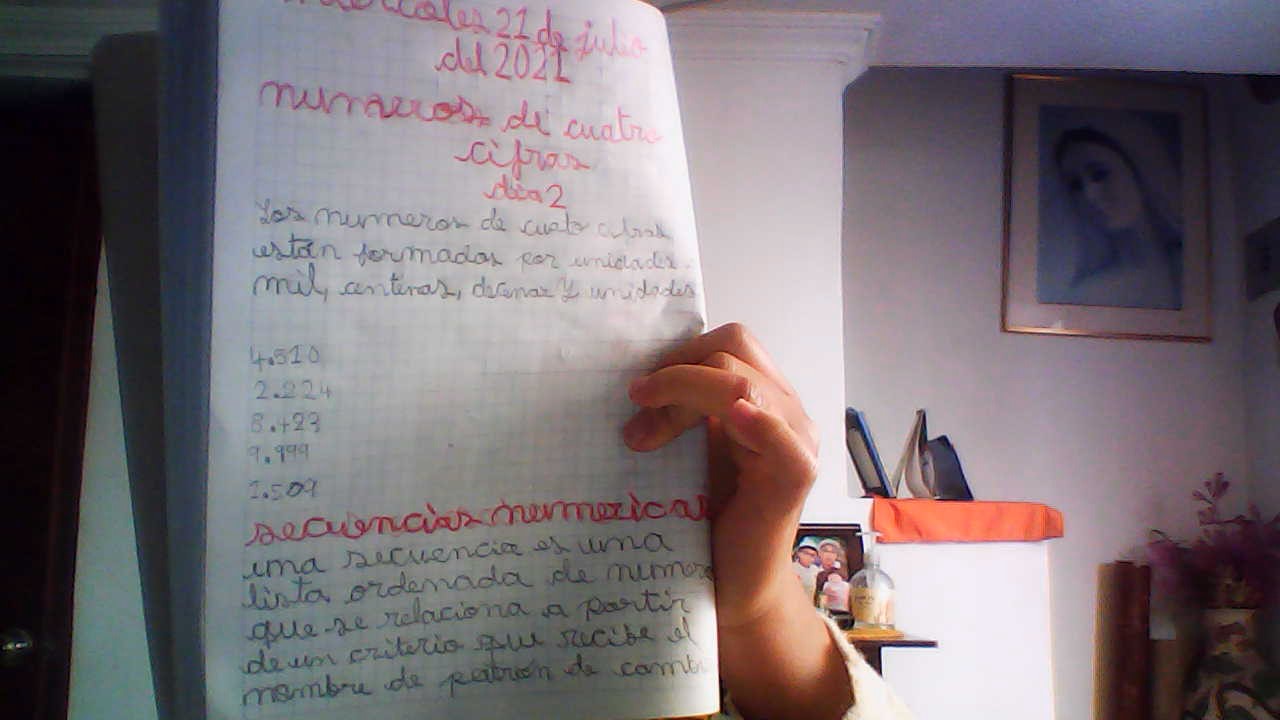 miercoles 21 de julio
del 2021
numeros de cuatro
cifras
dia 2
Los numeros de cuato cifras
están formados por unidades
mil, centenas, decenas y unidades
4.510
2.224
8.423
9.999
1.507
secuencias numericas
una secuencia es una
lista ordenada de numero
que se relaciona a partir
de un criterio que recibe el
nombre de patrón de cambi